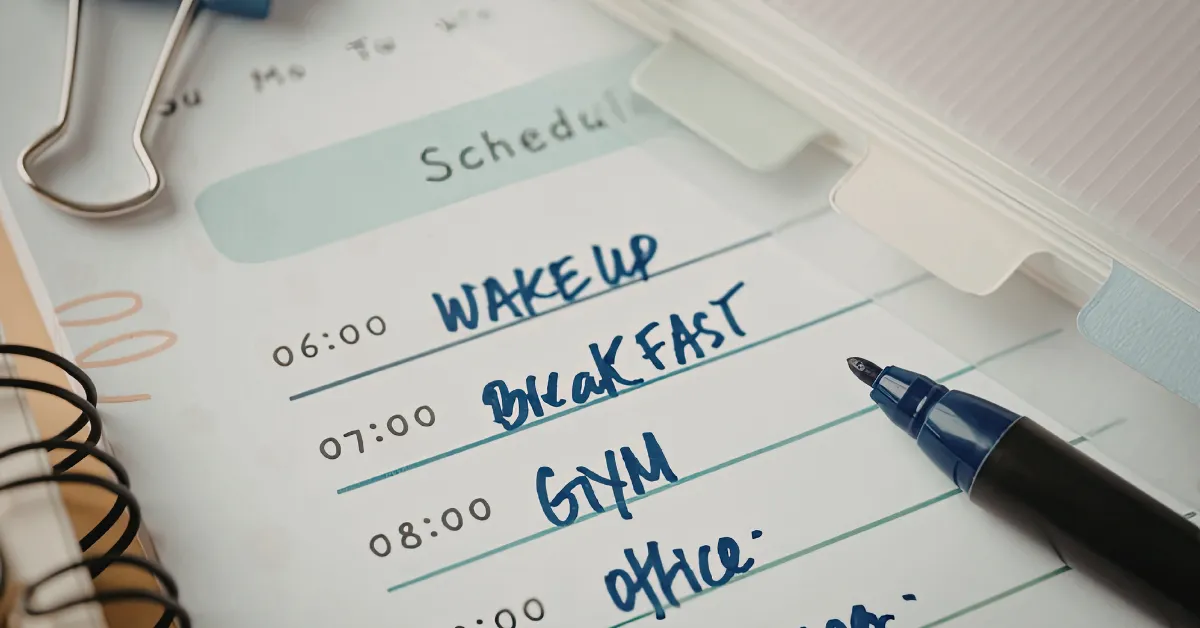 Su Mo Tu
Schedul
06:00 WAKE UP
07:00 BreaKFAST
08:00 GYM
:00 office